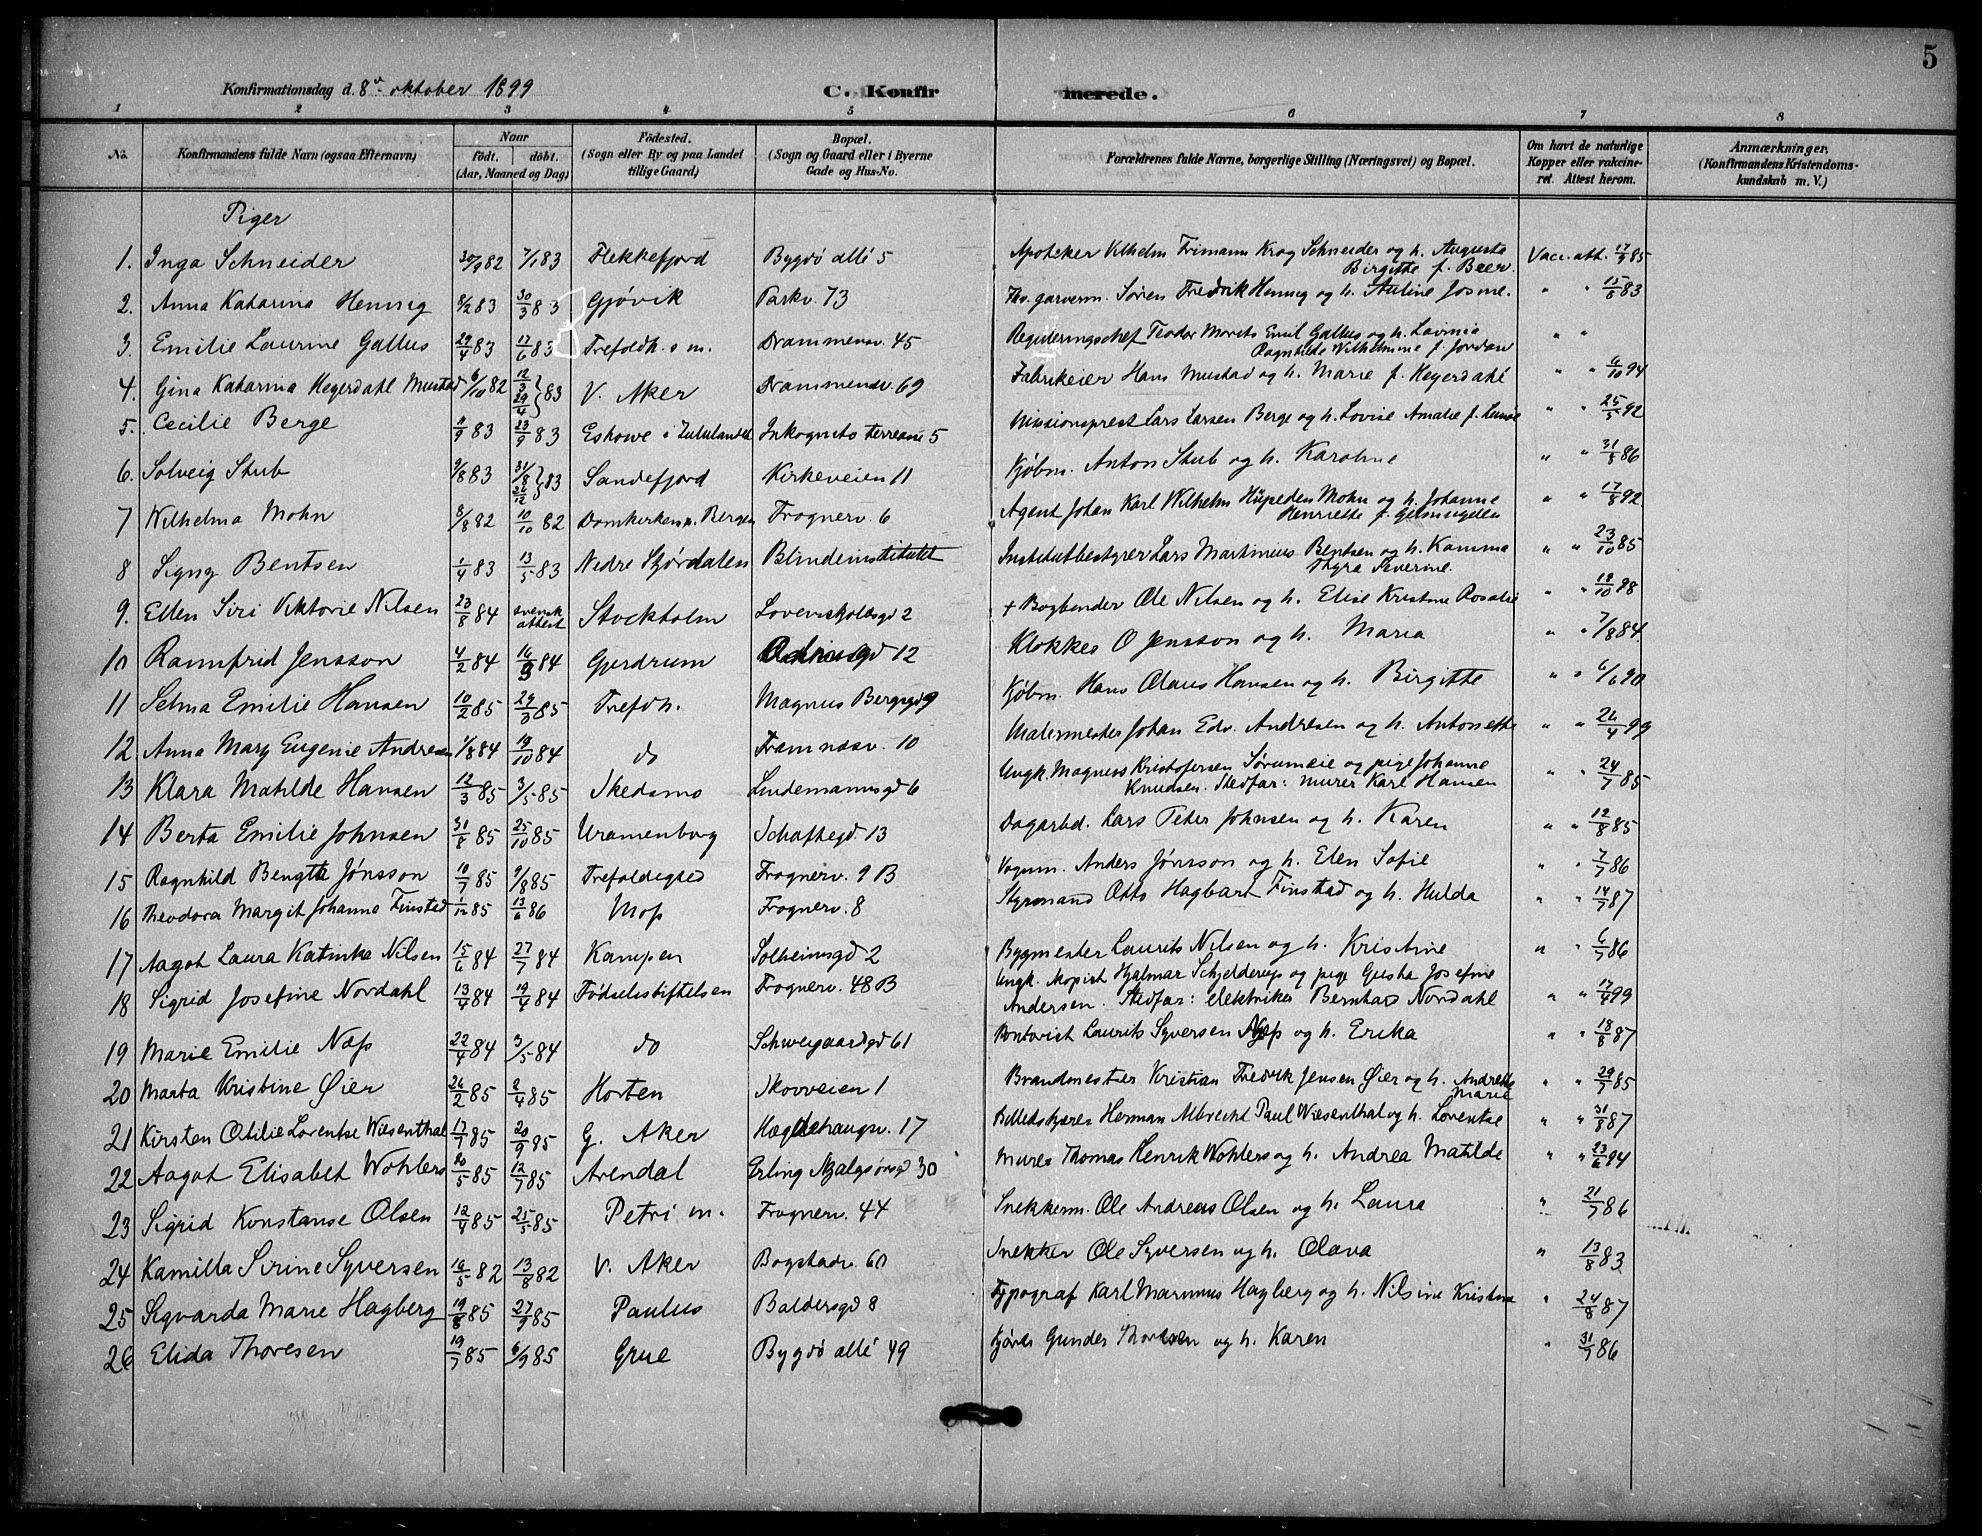 5
Konfirmationsdag d. 8de oktober 1899 C. Konfirmerede.
1 2 3 4 5 6 7 8
No. Konfirmandens fulde Navn (ogsaa Efternavn) Naar født. døbt. (Aar, Maaned og Dag) Fødested. (Sogn eller By og paa Landet tillige Gaard) Bopæl. (Sogn og Gaard eller i Byerne Gade og Hus-No. Forældrenes fulde Navne, borgerlige Stilling (Næringsvei) og Bopæl. Om havt de naturlige Kopper eller vakcineret. Attest herom. Anmærkninger, (Konfirmandens Kristendomskundskab m. V.)
Piger
1. Inga Schneider 30/9 82 7/1 83 Flekkefjord Bygdø allé 5 Apoteker Vilhelm Frimann Krog Schneider og h. Augusta Birgitte f. Beer. Vacc. att. 17/9 85
2. Anna Katarina Hennig 8/2 83 30/3 83 Gjøvik Parkv. 73 Fhv. garverm. Søren Fredrik Hennig og h. Auline Josine. " " 15/8 83
3. Emilie Laurine Gallus 29/4 83 17/6 83 Trefoldh. s m. Drammensv. 45 Reguleringschef Teodor Morits Emil Gallus og h. Lavinia Ragnhilde Wilhelmine f. Jordan " "
4. Gina Katarina Heyerdahl Mustad 6/10 82 12/3 29/4 } 83 V. Aker Drammensv. 69 Fabrikeier Hans Mustad og h. Marie f. Heyerdahl " " 6/10 94
5. Cecilie Berge 11/9 83 23/9 83 Eshowe i Zululandet Inkognito terrasse 5 Missionsprest Lars Larsen Berge og h. Lovise Amalie f. " " 25/5 92
6. Solveig Stub 9/8 83 31/8 26/12 } 83 Sandefjord Kirkeveien 11 Kjøbm. Anton Stub og h. Karoline " " 31/8 86
7 Wilhelma Mohn 8/8 82 10/10 82 Domkirken, Bergen Frognerv. 6 Agent Johan Karl Wilhelm Hüpeden Mohn og h. Johanne Henriette f. " " 17/8 92
8 Signy Bentsen 1/4 83 13/5 83 Nedre Stjørdalen Blindeinstitutet Institutbestyrer Lars Martinius Bentsen og h. Kamma Thyra Severine. " " 23/10 85
9. Ellen Siri Viktorie Nilsen 23/8 84 svensk attest Stockholm Lovenskjoldsgd 2 + Bogbinder Ole Nilsen og h. Elise Kristine Rosalie " " 19/10 98
10 Rannfrid Jensson 4/2 84 16/3 84 Gjerdrum 12 Klokker O Jensson og h. Maria " " 7/8 84
11 Selma Emilie Hansen 10/2 85 29/3 85 Trefdh. Magnus Bergsgd 9 Kjøbm. Hans Olaus Hansen og h. Birgitte " " 6/6 90
12. Anna Mary Eugenie Andresen 1/8 84 19/10 84 do Framnæsv. 10 Malermester Johan Edv. Andresen og h. Antonette " " 26/4 99
13 Klara Matilde Hansen 12/3 85 3/5 85 Skedsmo Lindemannsgd 6 Ungk. Magnus Kristofersen Sørumeie og pige Johanne Knudsen. Stedfar: murer Karl Hansen " " 24/7 85
14 Berta Emilie Johnsen 31/8 85 25/10 85 Uranienborg Schaftegd. 13 Dagarbd. Lars Peter Johnsen og h. Karen " " 12/8 85
15 Ragnhild Bengta Jönsson 10/7 85 9/8 85 Trefoldighed Frognerv. 9 B Vognm. Anders Jönsson og h. Elen Sofie " " 7/7 86
16 Theodora Margit Johanne Finstad 1/12 85 13/6 86 Moss Frognerv. 8 Styrmand Otto Hagbart Finstad og h. Hulda " " 14/7 87
17 Aagot Laura Katinka Nilsen 15/6 84 27/7 84 Kampen Solheimsgd 2 Bygmester Laurits Nilsen og h. Kristine " " 6/7 86
18 Sigrid Josefine Nordahl 13/4 84 19/4 84 Fødselsstiftelsen Frognerv. 48 B Ungk. kopist Hjalmar Schjelderup og pige Gusta Josefine Andersen. Stedfar: elektriker Bernhard Nordahl " " 17/4 99
19 Marie Emilie Næss 22/4 84 3/5 84 do Schweigaardsgd 61 Kontorist Laurits Syversen Næss og h. Erika " " 18/8 87
20 Marta Kristine Øier 26/2 85 2/4 85 Horten Skovveien 1 Brandmester Kristian Fredrik Jensen Øier og h. Andrette Marie " " 29/7 85
21 Kirsten Otilie Lorentse Wiesenthal 17/7 85 20/9 85 G. Aker Hægdehaugv. 17 Herman Albrecht Paul Wiesenthal og h. Lorentse " " 31/8 87
22 Aagot Elisabet Wohlers 20/5 85 12/7 85 Arendal Erling Skjalgsønsgd 30 Murer Thomas Henrik Wohlers og h. Andrea Matilde " " 23/6 94
23 Sigrid Konstanse Olsen 12/4 85 25/5 85 Petri m. Frognerv. 44 Snekkerm. Ole Andreas Olsen og h. Laura " 21/7 86
24 Kamilla Sirine Syversen 16/5 82 13/8 82 V. Aker Bogstadv. 60 Snekker Ole Syversen og h. Olava " 13/8 83
25 Sigvarda Marie Hagberg 19/8 85 27/9 85 Paulus Baldersgd 8 Typograf Karl Marinius Hagberg og h. Nilsine Kristine " 24/8 87
26 Elida Thoresen 19/7 85 6/9 85 Grue Bygdø allé 49 Kjører Gunder Thoresen og h. Karen " 31/7 86